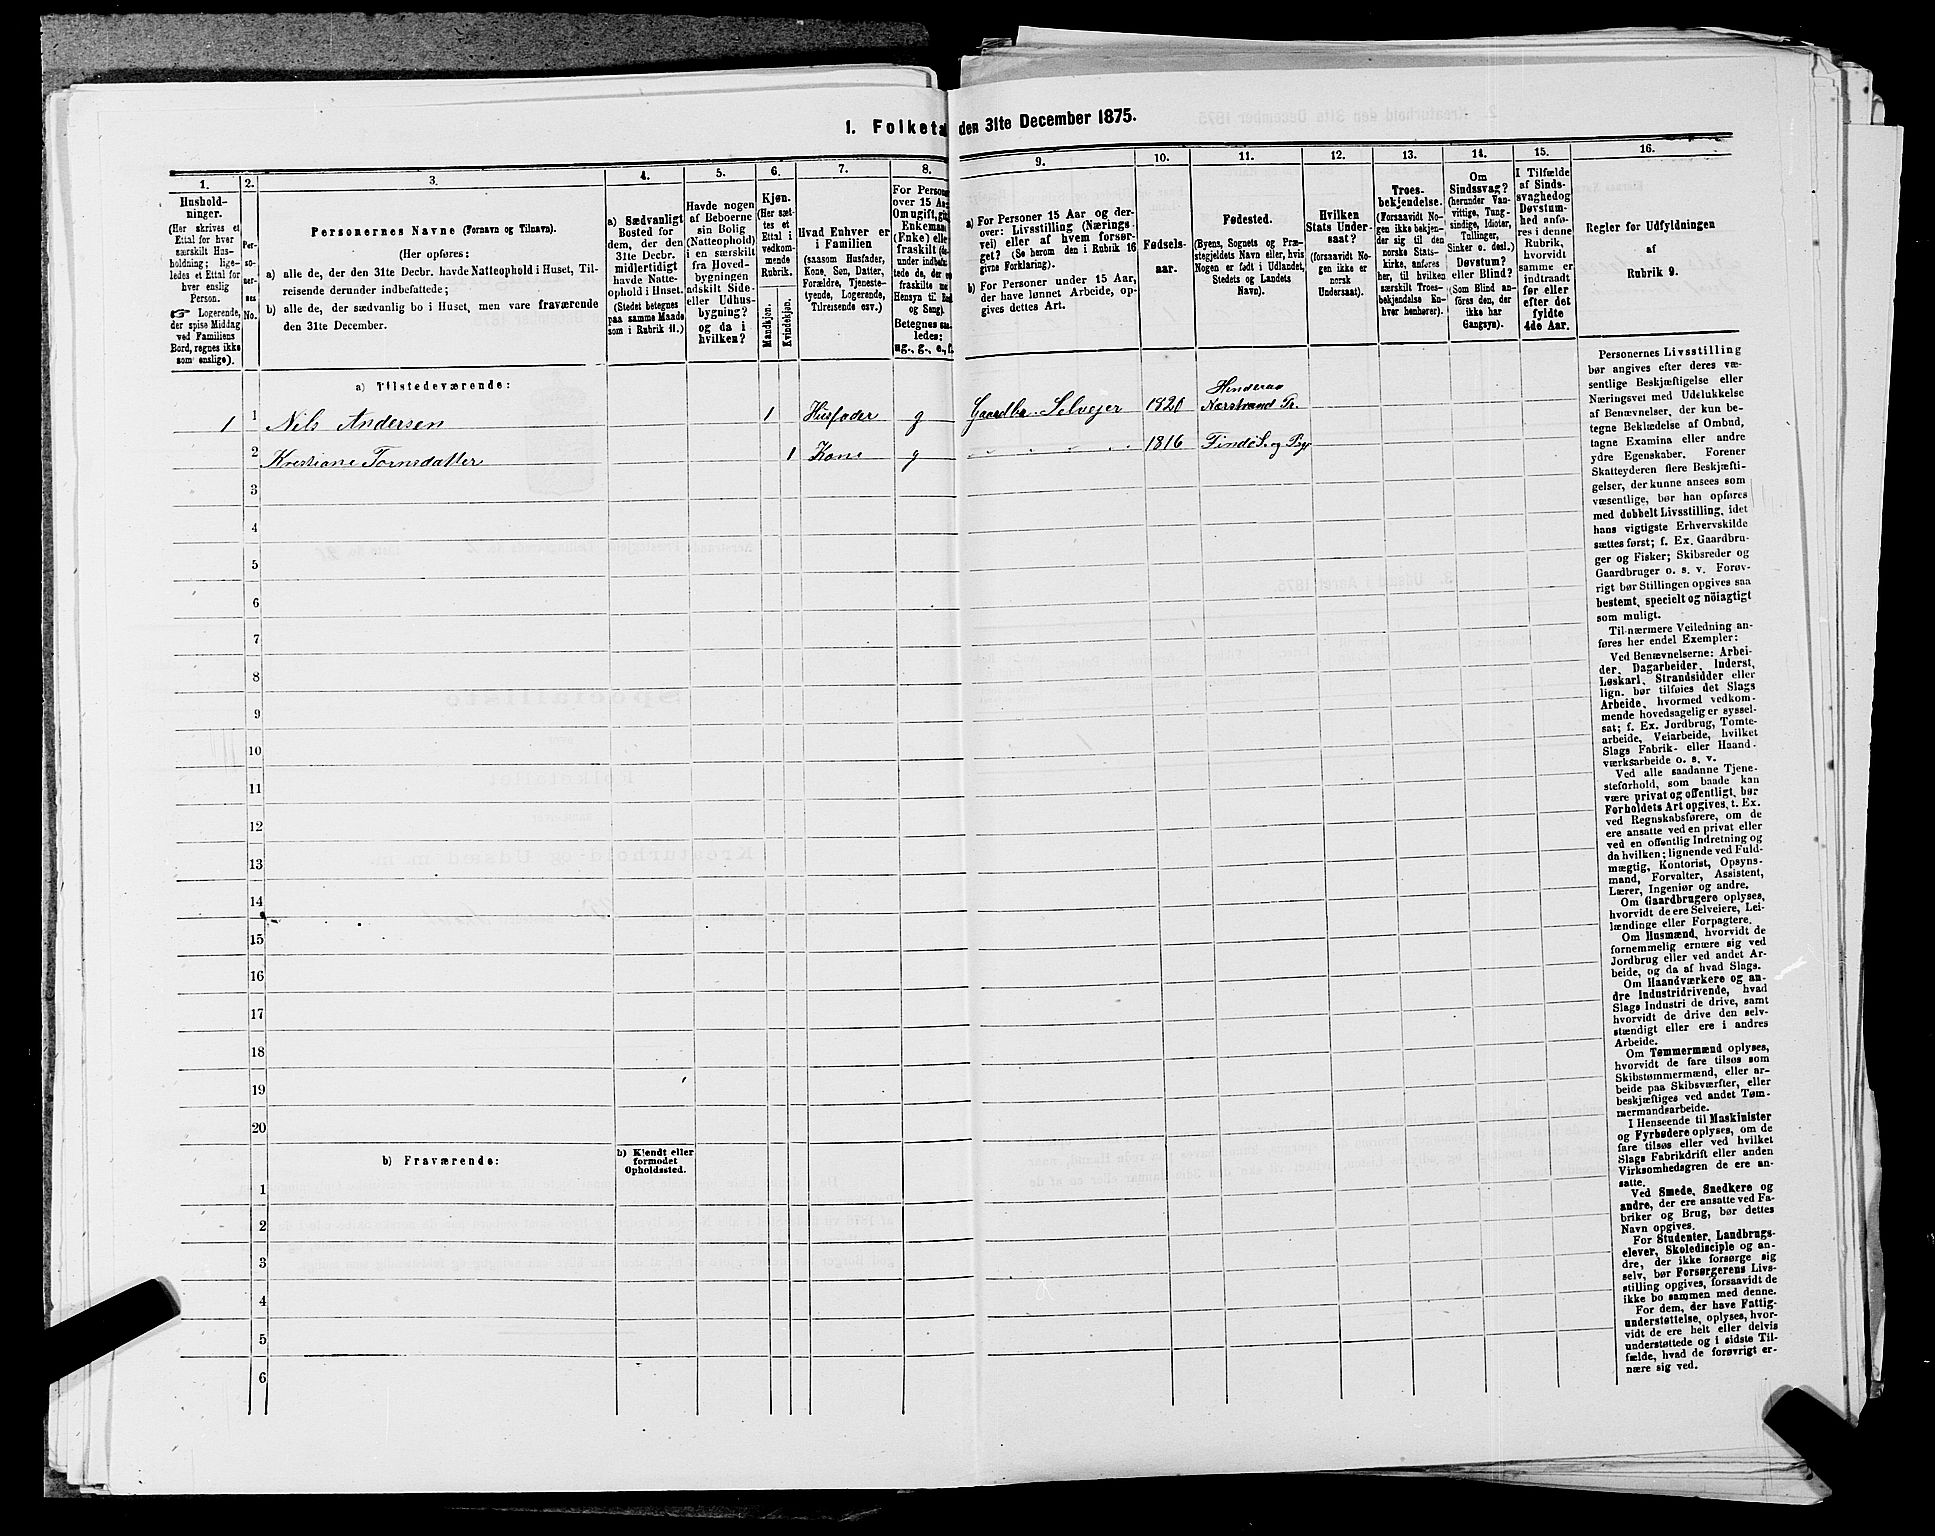 1. Folketal den 31te December 1875.
1.
2.
3.
4.
5.
6.
7.
8.
9.
10.
11.
12.
13.
14.
15.
16.
Hushold-
ninger.
(Her skrives et
Ettal for hver
særskilt Hus-
holdning; lige-
ledes et Ettal for
hver enslig
Person.
☞ Logerende,
der spise Middag
ved Familiens
Bord, regnes ikke
som enslige).
Per-
so-
ner-
nes
No.
Personernes Navne (Fornavn og Tilnavn).
(Her opføres:
a) alle de, der den 31te Decbr. havde Natteophold i Huset, Til-
reisende derunder indbefattede;
b) alle de, der sædvanlig bo i Huset, men vare fraværende
den 31te December.
a) Sædvanligt
Bosted for
dem, der den
31te Decbr.
midlertidigt
havde Natte-
ophold i Huset.
(Stedet betegnes
paa samme Maade
som i Rubrik 11.)
Havde nogen
af Beboerne
sin Bolig
(Natteophold)
i en særskilt
fra Hoved-
bygningen
adskilt Side-
eller Udhus-
bygning?
og da i
hvilken?
Kjøn.
(Her sæt-
tes et
Ettal i
vedkom-
mende
Rubrik.
Mandkjøn.
Kvindekjøn.
Hvad Enhver er
i Familien
(saasom Husfader,
Kone, Søn, Datter,
Forældre, Tjeneste-
tyende, Logerende,
Tilreisende osv.)
For Persone
over 15 Aa
Om ugift, gi
Enkema
(Enke) elle
fraskilt
Betegnes saa-
ledes:
ug., g., e., f.
a) For Personer 15 Aar og der-
over: Livsstilling (Nærings-
vei) eller af hvem forsør-
get? (Se herom den i Rubrik 16
givne Forklaring).
b) For Personer under 15 Aar,
der have lønnet Arbeide, op-
gives dettes Art.
Fødsels-
aar.
Fødested.
(Byens, Sognets og Præ-
stegjeldets Navn eller, hvis
Nogen er født i Udlandet,
Stedets og Landets
Navn).
Hvilken
Stats Under-
saat?
(forsaavidt No-
gen ikke er
norsk
Undersaat).
Troes-
bekjendelse.
(Forsaavidt No-
gen ikke bekjen-
der sig til den
norske Stats-
kirke, anføres
her, til hvilken
særskilt Troes-
bekjendelse En-
hver henhører).
Om
Sindssvag?
(herunder Van-
vittige, Tung-
sindige, Idioter,
Tullinger,
Sinker o. desl.)
Døvstum?
eller Blind?
(Som Blind an-
føres den, der
ikke har
Gangsyn).
I Tilfælde
af Sinds-
svaghed og
Døvstum-
hed anfø-
res i denne
Rubrik,
hvorvidt
samme er
indtraadt
før eller
efter det
fyldte
4de Aar.
Regler for Udfyldningen
af
Rubrik 9.
a) Tilstedeværende:
Hinderaa
1 1 Nils Andersen 1 Husfader g Gaardbr. Selvejer 1820 Nærstrand Pr.
2 Kristiane Tornsdatter 1 Kone g 1816 Findø S. og Pgj
3
4
5
6
7
8
9
10
11
12
13
14
15
16
17
18
19
20
b) Fraværende:
b) Kjendt eller
formodet
Opholdssted.
1
2
3
4
5
6
Personernes Livsstilling
bør angives efter deres væ-
sentlige Beskjæftigelse eller
Næringsvei med Udelukkelse
af Benævnelser, der kun be-
tegne Beklædelse af Ombud,
tagne Examina eller andre
ydre Egenskaber. Forener
Skatteyderen flere Beskjæfti-
gelser, der kunne ansees som
væsentlige, bør han opføres
med dobbelt Livsstilling, idet
hans vigtigste Erhvervskilde
sættes først; f. Ex. Gaardbru-
ger og Fisker; Skibsreder og
Gaardbruger o. s. v. Forøv-
rigt bør Stillingen opgives saa
bestemt, specielt og nöiagtigt
som muligt.
Til nærmere Veiledning an-
føres her endel Exempler:
Ved Benævnelserne: Arbei-
der, Dagarbeider, Inderst,
Løskarl, Strandsidder eller
lign. bør tilføies det Slags
Arbeide, hvormed vedkom-
mende hovedsagelig er syssel-
sat; f. Ex. Jordbrug, Tomte-
arbeide, Veiarbeide, hvilket
Slags Fabrik- eller Haand-
værksarbeide o. s. v.
Ved alle saadanne Tjene-
steforhold, som baade kan
være privat og offentligt, bør
Forholdets Art opgives, t. Ex.
ved Regnskabsførere, om de
ere ansatte ved en privat eller
ved en offentlig Indretning og
da hvilken; lignende ved Fuld-
mægtig, Kontorist, Opsyns-
mand, Forvalter, Assistent,
Lærer, Ingeniør og andre.
Om Gaardbrugere oplyses,
hvorvidt de ere Selveiere, Lei-
lændinge eller Forpagtere.
Om Husmænd, hvorvidt de
fornemmelig ernære sig ved
Jordbrug eller ved andet Ar-
beide, og da af hvad Slags.
Om Haandværkere og an-
dre Industridrivende, hvad
Slags Industri de drive, samt
hvorvidt de drive den selv-
stændigt eller ere i andres
Arbeide.
Om Tømmermænd oplyses,
hvorvidt de fare tilsøs som
Skibstømmermænd, eller ar-
beide paa Skibsværfter, eller
beskjæftiges ved andet Tøm-
mermandsarbeide.
I Henseende til Maskinister
og Fyrbødere oplyses, om de
fare tilsøs eller ved hvilket
Slags Fabrikdrift eller anden
Virksomhedsgren de ere an-
satte.
Ved Smede, Snedkere og
andre, der ere ansatte ved Fa-
briker og Brug, bør dettes
Navn opgives.
For Studenter, Landbrugs-
elever, Skoledisciple og an-
dre, der ikke forsørge sig
selv, bør Forsørgerens Livs-
stilling opgives, forsaavidt de
ikke bo sammen med denne.
For dem, der have Fattig-
understøttelse, oplyses, hvor-
vidt de ere helt eller delvis
understøttede og i sidste Til-
fælde, hvad de forøvrigt er-
nære sig ved.